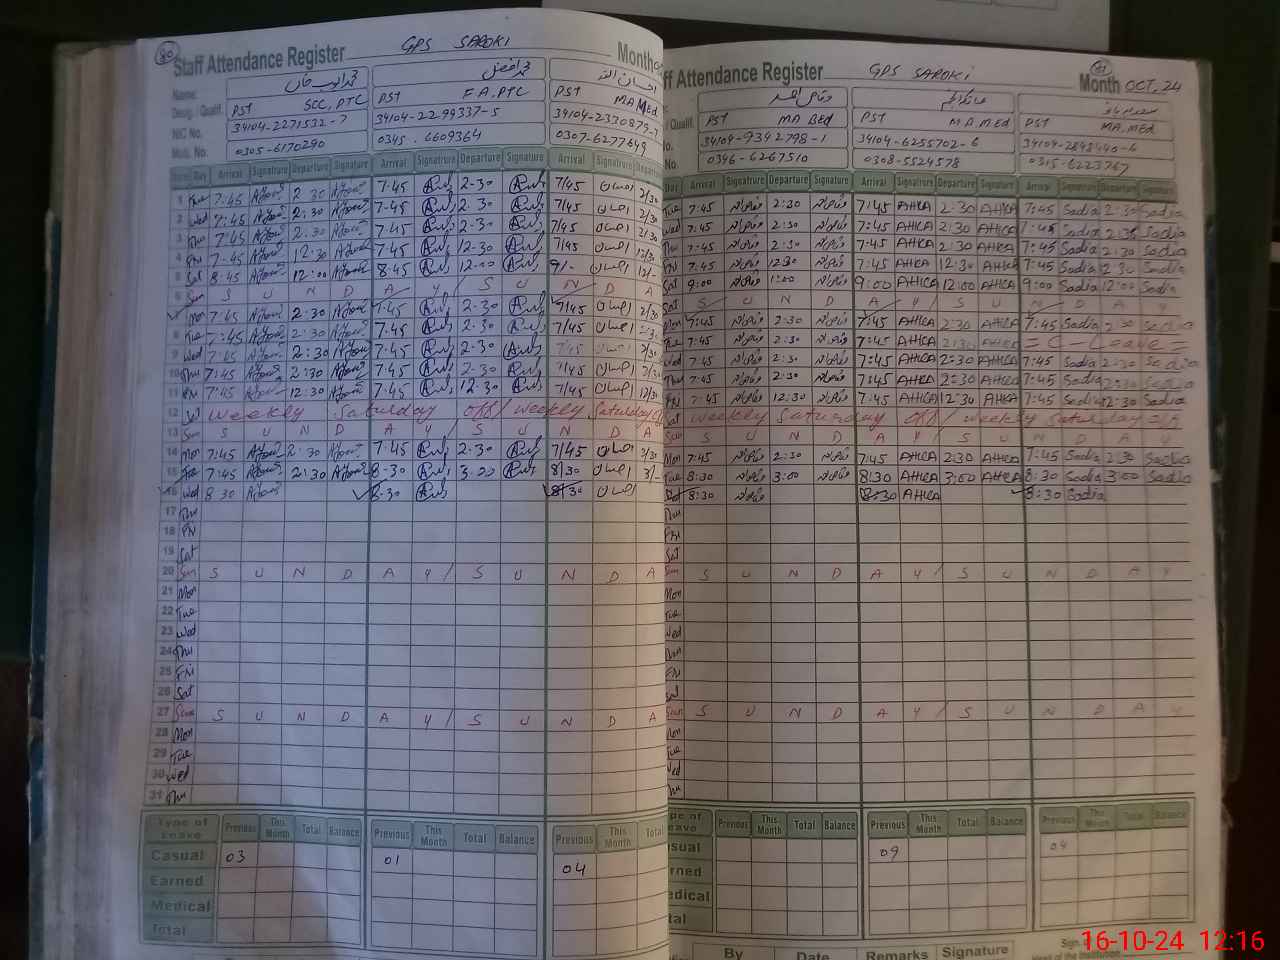 80
Staff Attendance Register GPS SAROKI Month
Name:
Desig. / Qualif. PST SCC, PTC PST F.A, PTC PST MA MEd
NIC No. 34104-2271532-7 34104-2294337-5 34104-2330879-7
Mob. No. 0305-6170290 0345. 6609364 0307-6277649
Day Arrival Signature Departure Signature Arrival Signature Departure Signature Arrival Signature Departure
1 Tue 7:45 2:30 7.45 2-30 7/45 احسان 2/30
2 Wed 7:45 2:30 7-45 2-30 7/45 احسان 2/30
3 Thu 7:45 2:30 7-45 2-30 7/45 احسان 2/30
4 Fri 7-45 12:30 7.45 12-30 7/45 احسان 12/30
5 Sat 8:45 12:00 8.45 12-00 9/- احسان 12/-
6 Sun S U N D A Y / S U N D A
7 Mon 7:45 2:30 7.45 2-30 7/45 احسان 2/30
8 Tue 7:45 2:30 7.45 2-30 7/45 احسان 2/30
9 Wed 7:45 2:30 7.45 2-30 7/45 احسان 2/30
10 Thu 7:45 2:30 7.45 2-30 7/45 احسان 2/30
11 Fri 7:45 12:30 7.45 12-30 7/45 احسان 12/30
12 Sat weekly Saturday off / weekly Saturday
13 Sun S U N D A Y / S U N D A
14 Mon 7:45 2:30 7.45 2-30 7/45 احسان 2/30
15 Tue 7:45 2:30 8-30 3-00 8/30 احسان 3/-
16 Wed 8 30 8-30 8/30 احسان
17 Thu
18 Fri
19 Sat
20 Sun S U N D A Y / S U N D A
21 Mon
22 Tue
23 Wed
24 Thu
25 Fri
26 Sat
27 Sun S U N D A Y / S U N D A
28 Mon
29 Tue
30 Wed
31 Thu
Type of Leave Previous This Month Total Balance Previous This Month Total Balance Previous This Month Total
Casual 03 01 04
Earned
Medical
Total
81
ff Attendance Register GPS SAROKI Month OCT, 24
Qualif. PST MA BEd PST M.A.MEd PST MA.MEd
No. 34104-9342798-1 34104-6255702-6 34104-2848440-6
No. 0346-6267510 0308-5524578 0315-6223767
Day Arrival Signature Departure Signature Arrival Signature Departure Signature Arrival Signature Departure Signature
Tue 7:45 2:30 7:45 AHKA 2:30 AHKA 7:45 Sadia 2:30 Sadia
Wed 7:45 2:30 7:45 AHKA 2:30 AHKA 7:45 Sadia 2:30 Sadia
Thu 7:45 2:30 7:45 AHKA 2:30 AHKA 7:45 Sadia 2:30 Sadia
Fri 7:45 12:30 7:45 AHKA 12:30 AHKA 7:45 Sadia 12:30 Sadia
Sat 9:00 1:00 9:00 AHKA 12:00 AHKA 9:00 Sadia 12:00 Sadia
S U N D A Y / S U N D A Y
Mon 7:45 2:30 7:45 AHKA 2:30 AHKA 7:45 Sadia 2:30 Sadia
Tue 7:45 2:30 7:45 AHKA 2:30 AHKA = C-Leave =
Wed 7:45 2:30 7:45 AHKA 2:30 AHKA 7:45 Sadia 2:30 Sadia
Thu 7:45 2:30 7:45 AHKA 2:30 AHKA 7:45 Sadia 2:30 Sadia
Fri 7:45 12:30 7:45 AHKA 12:30 AHKA 7:45 Sadia 12:30 Sadia
Sat weekly Saturday off / weekly Saturday off
Sun S U N D A Y / S U N D A Y
Mon 7:45 2:30 7:45 AHKA 2:30 AHKA 7:45 Sadia 2:30 Sadia
Tue 8:30 3:00 8:30 AHKA 3:00 AHKA 8:30 Sadia 3:00 Sadia
Wed 8:30 8:30 AHKA 8:30 Sadia
Thu
Fri
Sat
Sun S U N D A Y / S U N D A Y
Mon
Tue
Wed
Thu
Fri
Sat
Sun S U N D A Y / S U N D A Y
Mon
Tue
Wed
Thu
pe of eave Previous This Month Total Balance Previous This Month Total Balance Previous This Month Total Balance
sual 09 04
rned
edical
tal
By Date Remarks Signature
16-10-24 12:16